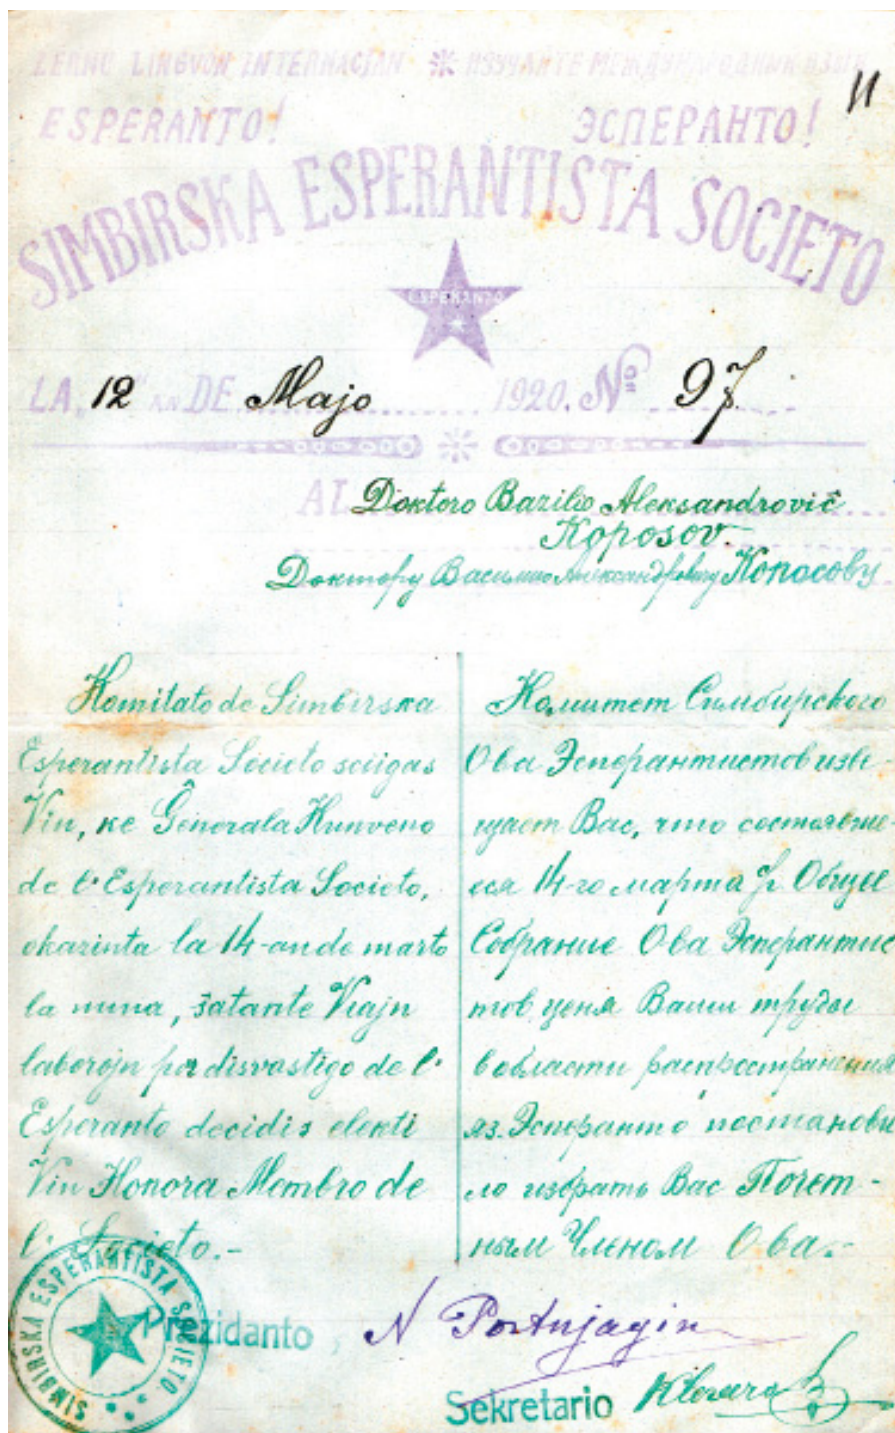 LERNU LINGVON INTERNACIAN ИЗУЧАЙТЕ МЕЖДУНАРОДНЫЙ ЯЗЫК
ESPERANTO! ЭСПЕРАНТО!
SIMBIRSKA ESPERANTISTA SOCIETO
ESPERANTO
LA „12" AN DE Majo 1920. № 97
AL Doktoro Bazilio Aleksandrovič
Koposov
Доктору Василию Александровичу Копосову
Komitato de Simbirska
Esperantista Societo sciigas
Vin, ke Ĝenerala Kunveno
de l' Esperantista Societo,
okazinta la 14-an de marto
la nuna, ŝatante Viajn
laborojn por disvastigo de l'
Esperanto decidis elekti
Vin Honora Membro de
l' Societo.-
Комитет Симбирского
О-ва Эсперантистов изве-
щает Вас, что состоявше-
еся 14-го марта Общее
Собрание О-ва Эсперантис
тов ценя Ваши труды
в области распространения
яз. Эсперанто постанови
ло избрать Вас Почет-
ным Членом О-ва.-
SIMBIRSKA ESPERANTISTA SOCIETO
Prezidanto, N Portnjagin
Sekretario